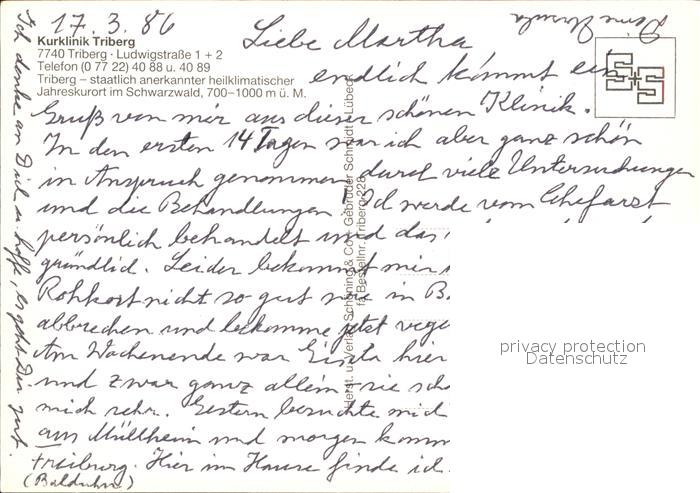 17.3.86
Kurklinik Triberg
7740 Triberg · Ludwigstraße 1 + 2
Telefon (0 77 22) 40 88 u. 40 89
Triberg – staatlich anerkannter heilklimatischer
Jahreskurort im Schwarzwald, 700–1000 m ü. M.
Liebe Martha,
endlich kommt ein
Gruß von mir aus dieser schönen Klinik.
In den ersten 14 Tagen war ich aber ganz schön
in Anspruch genommen durch viele Untersuchungen
und die Behandlungen. Ich werde vom Chefarzt
persönlich behandelt und das
gründlich. Leider bekommt mir
Rohkost nicht so gut wie in B.
abbrechen und bekomme jetzt vege
Am Wochenende war Gisela hier
und zwar ganz allein, sie
mich sehr. Gestern besuchte mich
aus Müllheim und morgen komm
Freiburg. Hier im Hause finde ich
(Balduhn)
Ich denke an Dich u. hoffe, es geht Dir gut.
Deine Ursula
Herst. u. Verlag Schöning & Co + Gebrüder Schmidt, Lübeck
Bestellnr. Triberg 228
privacy protection
Datenschutz